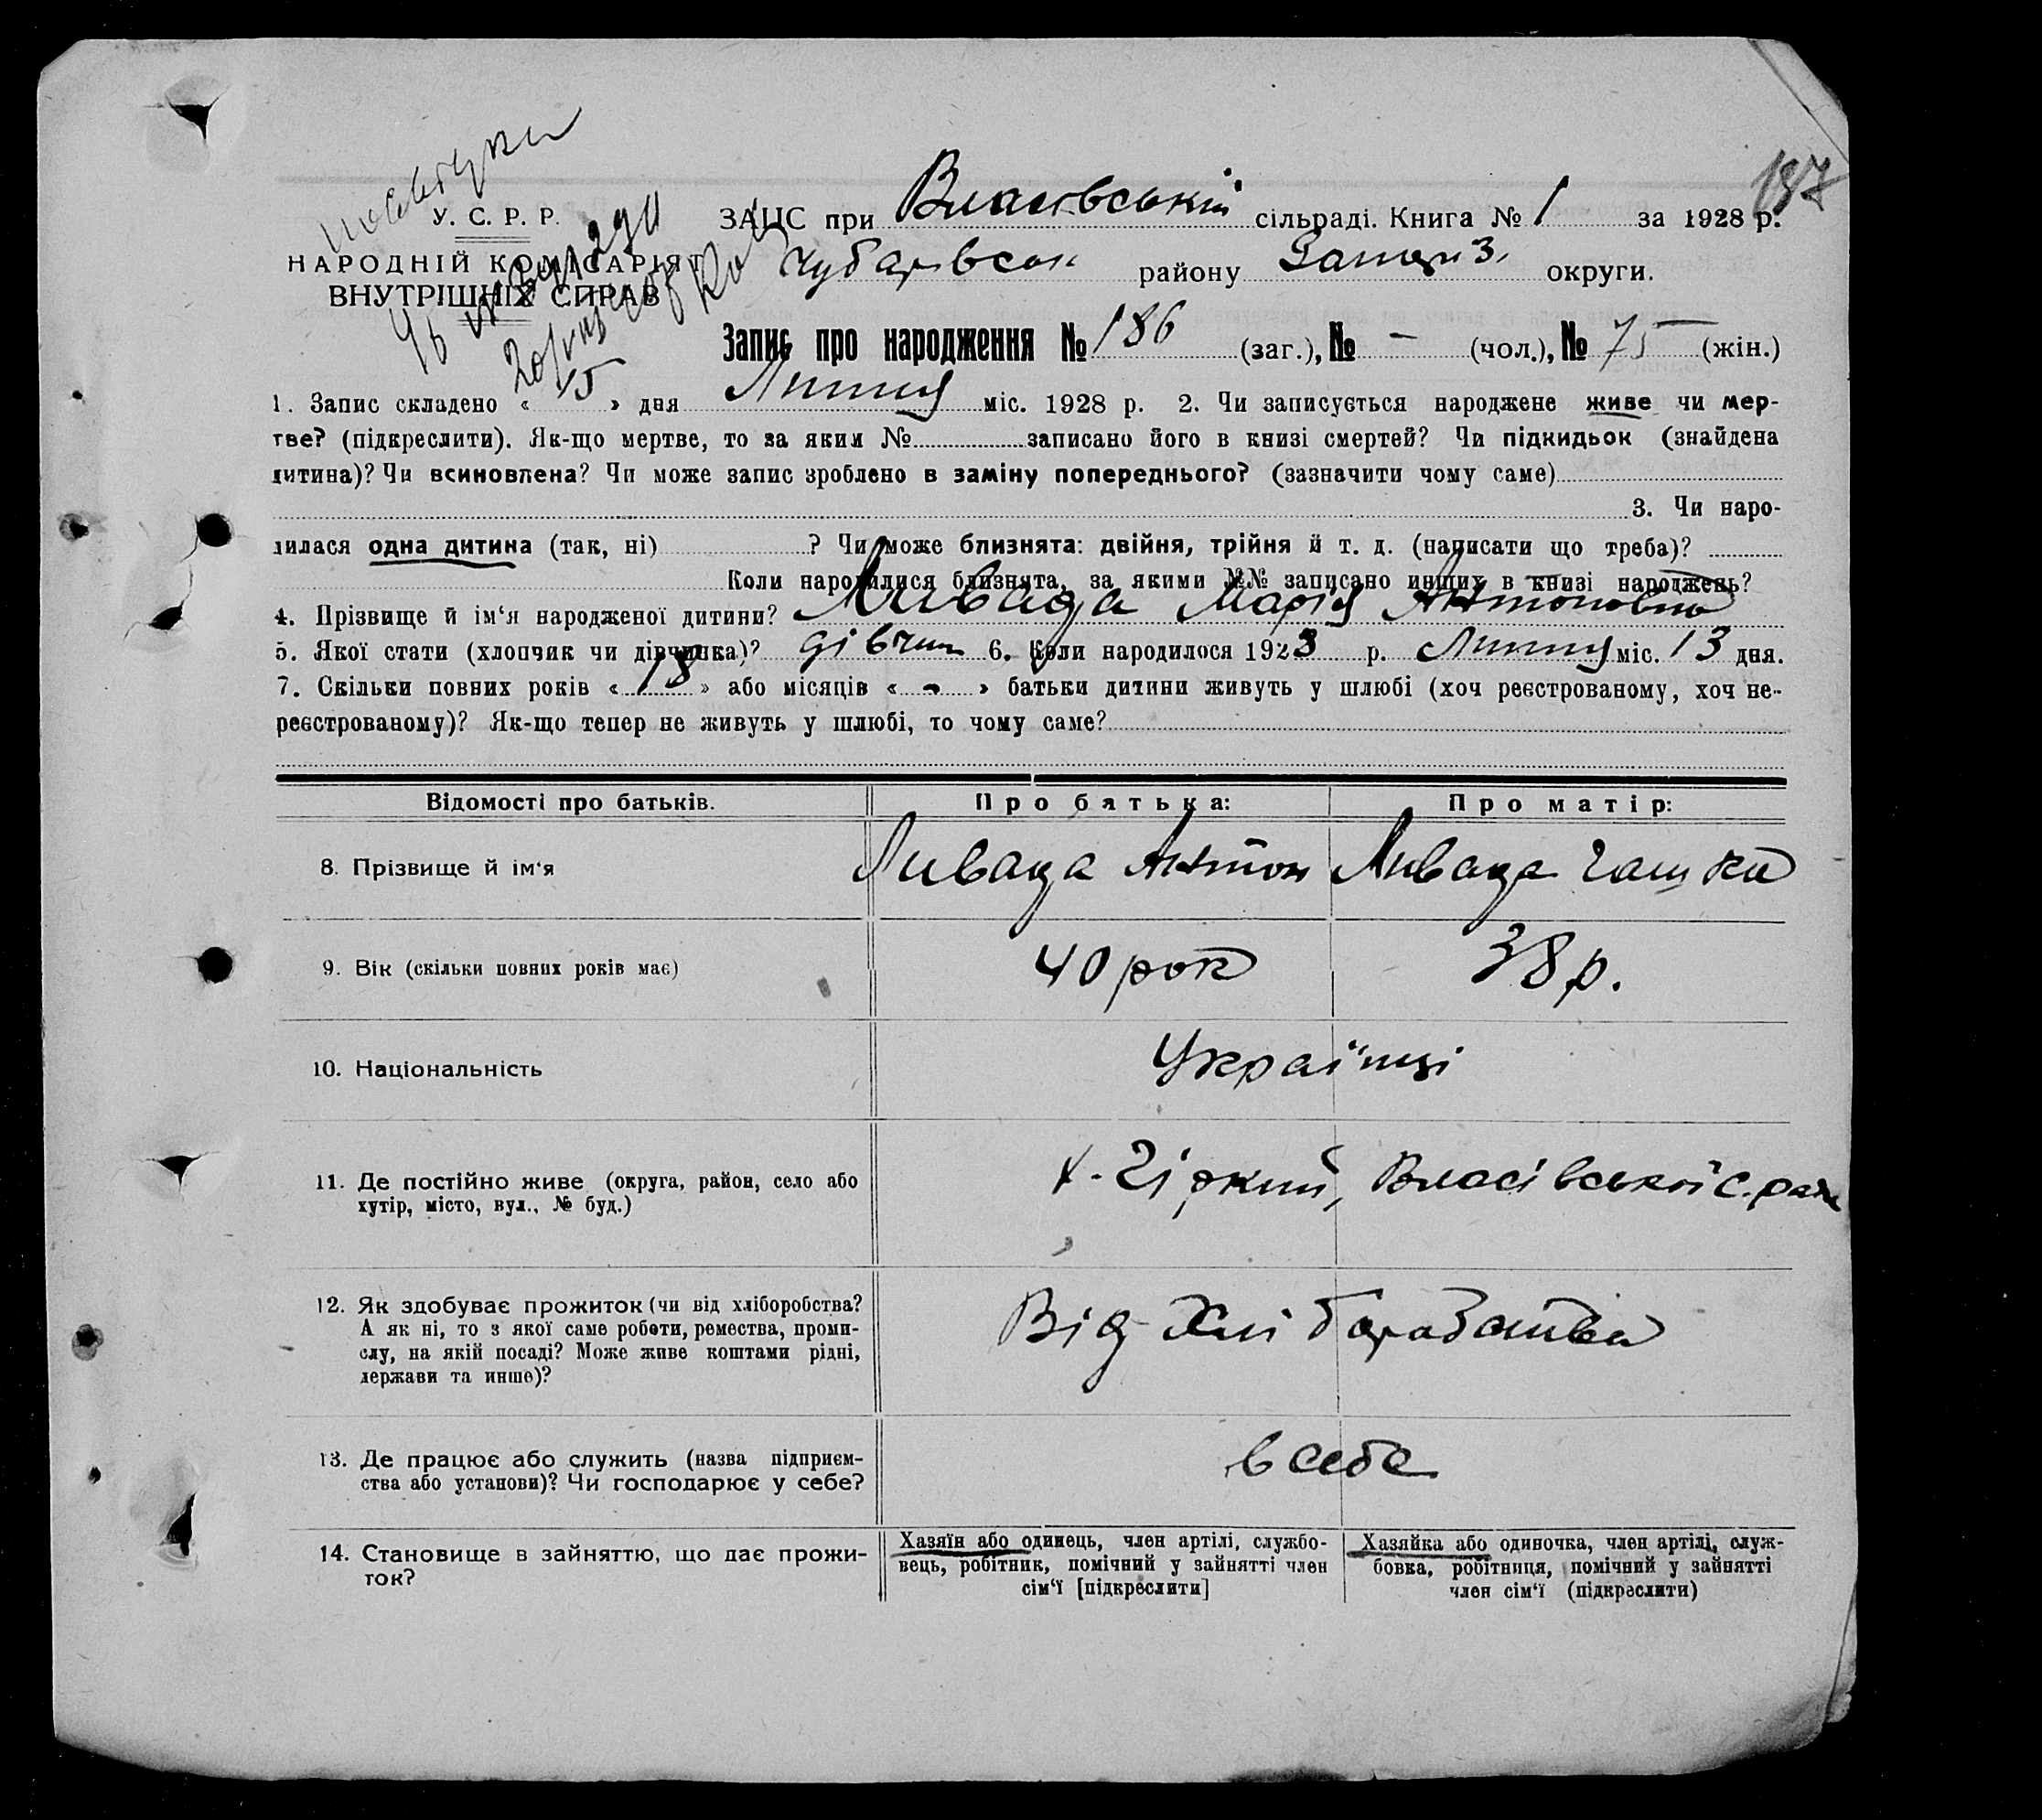 187
У. С. Р. Р.
НАРОДНІЙ КОМІСАРІЯТ
ВНУТРІШНІХ СПРАВ
ЗАЦС при Власівській сільраді. Книга № 1 за 1928 р.
Чубарівськ району Запоріз. округи.
Запис про народження № 186 (заг.), № – (чол.), № 75 (жін.)
1. Запис складено « 15 » дня Липня міс. 1928 р. 2. Чи записується народжене живе чи мер-
тве? (підкреслити). Як-що мертве, то за яким № записано його в книзі смертей? Чи підкидьок (знайдена
дитина)? Чи всиновлена? Чи може запис зроблено в заміну попереднього? (зазначити чому саме)
3. Чи наро-
дилася одна дитина (так, ні) ? Чи може близнята: двійня, трійня й т. д. (написати що треба)?
Коли народилися близнята, за якими №№ записано инших в книзі народжень?
4. Прізвище й ім‘я народженої дитини? Ливада Марія Антоновна
5. Якої стати (хлопчик чи дівчинка)? дівчин 6. Коли народилося 1928 р. Липня міс. 13 дня.
7. Скільки повних років « 18 » або місяців « - » батьки дитини живуть у шлюбі (хоч реєстрованому, хоч не-
реєстрованому)? Як-що тепер не живуть у шлюбі, то чому саме?
Відомості про батьків. Про батька: Про матір:
8. Прізвище й ім‘я Ливада Антон Ливада Гашка
9. Вік (скільки повних років має) 40 рок 38 р.
10. Національність Українці
11. Де постійно живе (округа, район, село або
хутір, місто, вул., № буд.)
х. Гіркий, Власівської с. ради
12. Як здобуває прожиток (чи від хліборобства?
А як ні, то з якої саме роботи, ремества, проми-
слу, на якій посаді? Може живе коштами рідні,
держави та инше)?
Від Хліборобства
13. Де працює або служить (назва підприєм-
ства або установи)? Чи господарює у себе?
в себе
14. Становище в зайняттю, що дає прожи-
ток?
Хазяїн або одинець, член артілі, службо-
вець, робітник, помічний у зайнятті член
сім‘ї [підкреслити]
Хазяйка або одиночка, член артілі, служ-
бовка, робітниця, помічний у зайнятті
член сім‘ї (підкреслити)